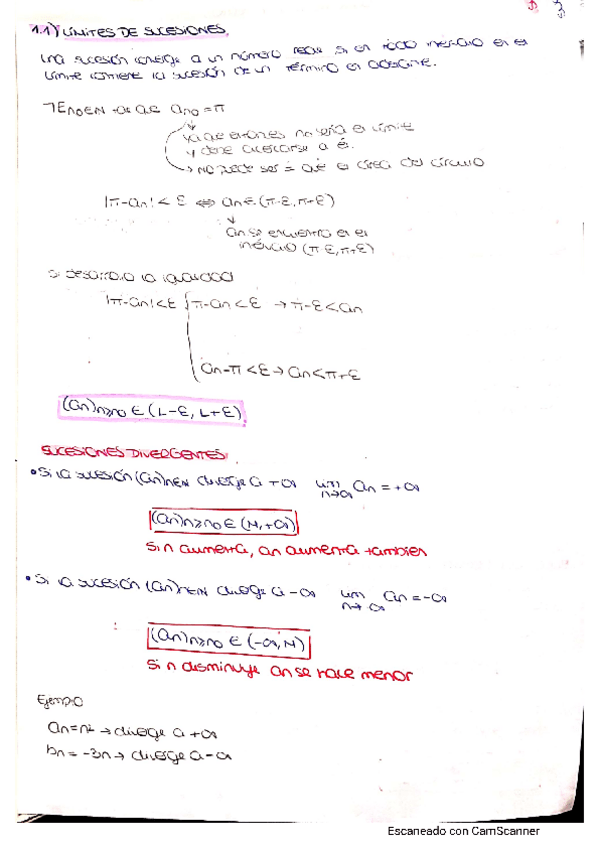 1.1) LÍMITES DE SUCESIONES.
Una sucesión converge a un número real si en todo intervalo en el
límite contiene la sucesión de un término en adelante.
∃n∈N tal que an₀ = π
ya que entonces no sería el límite
y debe acercarse a él.
→ No puede ser = a él el área del círculo
|π-an| < ε ⇔ an ∈ (π-ε, π+ε)
an se encuentra en el
intervalo (π-ε, π+ε)
Si desarrollo la igualdad
|π-an| < ε { π-an < ε → π-ε < an
an-π < ε → an < π+ε
(an)n≥n₀ ∈ (L-ε, L+ε)
SUCESIONES DIVERGENTES
• Si la sucesión (an)n∈N diverge a +∞ lim n→∞ an = +∞
(an)n≥n₀ ∈ (M, +∞)
Si n aumenta, an aumenta tambien
• Si la sucesión (an)n∈N diverge a -∞ lim n→∞ an = -∞
(an)n≥n₀ ∈ (-∞, M)
Si n disminuye an se hace menor
Ejemplo
an = n² → diverge a +∞
bn = -3n → diverge a -∞
Escaneado con CamScanner